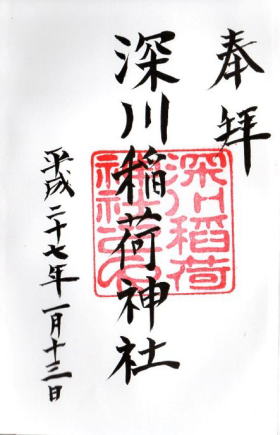 奉拝
深川稲荷神社
深川稲荷
神社之印
平成二十七年一月十三日